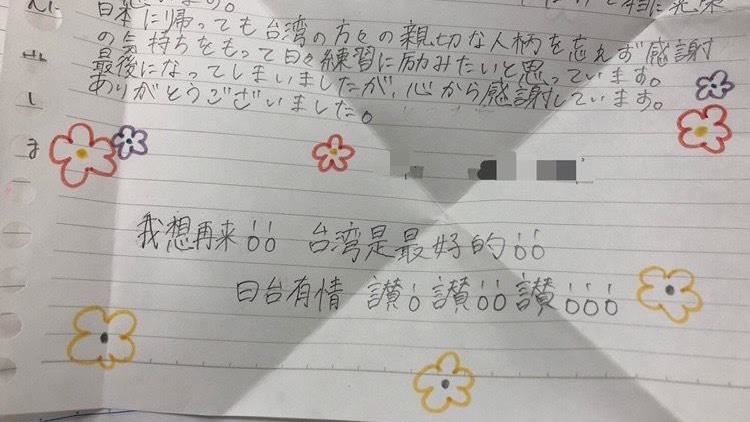 日本に帰っても台湾の方々の親切な人柄を忘れず感謝
の気持ちをもって日々練習に励みたいと思っています。
最後になってしまいましたが、心から感謝しています。
ありがとうございました。
我想再来!! 台湾是最好的!!
日台有情 讃!讃!!讃!!!